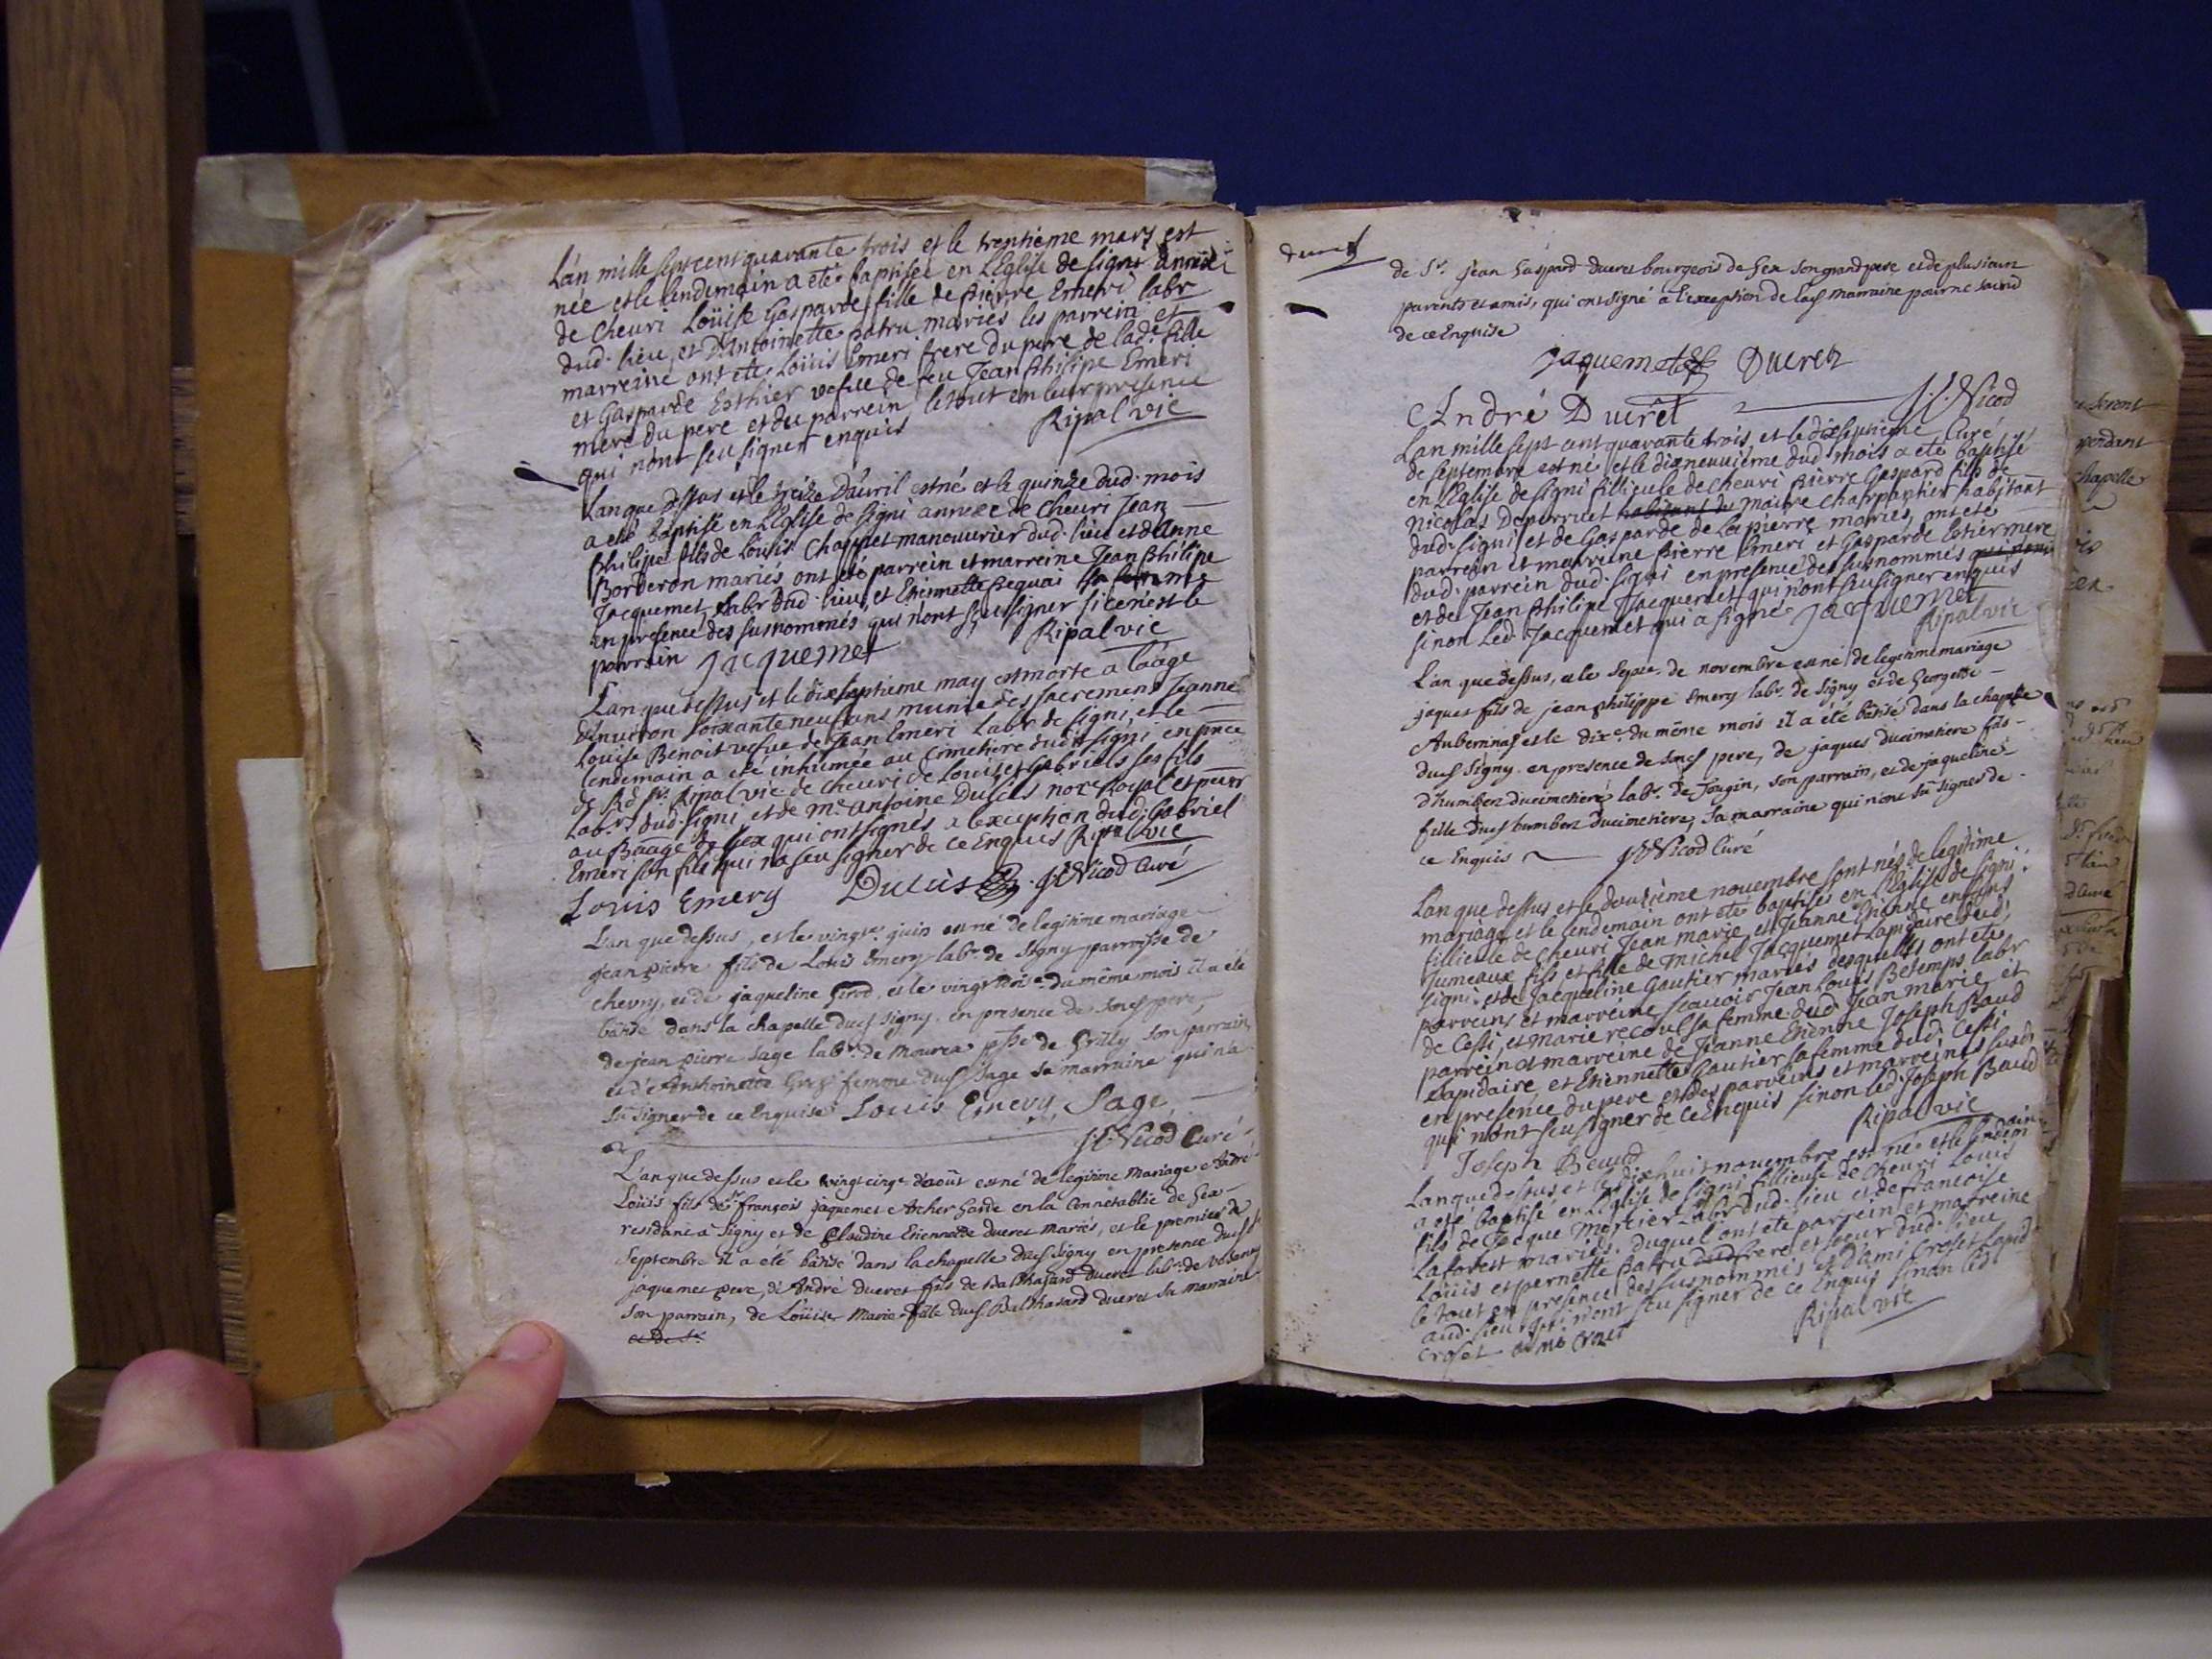 L'an mille sept cent quarante trois et le trentieme mars est
née et le lendemain a eté baptisée en l'Eglise de signi annéxe
de Cheuri Loüise Gasparde fille de pierre Emeri labr
dud. lieu, et D'Antoinette patru mariés les parrein et
marreine ont eté Loüis Emeri frere du pere de lad.e fille
et Gasparde Esthier vefue de feu Jean Philipe Emeri
mere du pere et du parrein, le tout en leur presence
qui n'ont seu signer enquis Ripalvie
L'an que Dessus et le treize D'auril est né et le quinze dud. mois
a eté baptisé en L'Eglise de signi annéxe de Cheuri Jean
Philipe fils de Loüis Chappet manouurier dud. lieu et d'Anne
Borderon mariés ont eté parrein et marreine Jean Philipe
Jacquemet Labr dud. lieu, et Etiennette Pequai sa femme
en presence des susnommés qui n'ont sçeu signer si ce n'est le
parrain Jacquemet Ripalvie
L'an que dessus et le dixseptieme may est morte a l'aage
d'enuiron soixante neuf ans munie des sacremens Jeanne
Louise Benoit vefue de Jean Emeri Labr de signi, et le
lendemain a eté inhumée au cimetiere dudit signi, en prnce
de Rd Sr. Ripalvie de Cheuri de Louis et Gabriels ses fils
Labrs dud. signi, et de Me. Antoine Dulcis nore Royal et procr
au Baage de Gex qui ont signés a l'exception dud. Gabriel
Emeri son fils qui n'a seu signer de ce Enquis Ripalvie
Louis Emery Dulcis J. F. Nicod Curé
L'an que dessus, et le vingte. juin est né de legitime mariage
jean pierre fils de Loüis Emery labr. de Signy parroisse de
chevry, et de jaqueline Girod, et le vingt trois. du même mois il a été
bâtisé dans la chapelle dud. Signy. en presence de sond. pere,
de jean pierre Sage labr. de Mourex psse. de Grilly son parrain
et d'Anthoinette femme dud. Sage sa marraine qui n'a
sû signer de ce Enquise Louis Emery, Sage
J. F. Nicod Curé
L'an que dessus et le vingt cinqe. d'août est né de legitime mariage André
Loüis fils de Sr. françois jaquemet Archer Garde en la Connetablie de Gex
residant à Signy et de Claudine Etiennette Dueret mariés, et le premier de
Septembre il a été bâtisé dans la chapelle dud. Signy en presence dud. Sr.
jaquemet pere, d'André Dueret fils de Balthasard Dueret labr. de
son parrain, de Loüise Marie fille dud. Balthasard Dueret sa marraine
et de Sr.
de Sr. Jean Gaspard Dueret bourgeois de Gex son grand pere et de plusieurs
parents et amis, qui ont signé à l'exception de lad. marraine pour ne savoir
de ce Enquise
Jaquemet Dueret
André Duerêt J. F. Nicod
Curé
L'an mille sept cent quarante trois, et le dixseptieme
de septembre est né et le dixneuuième dud. mois a eté baptisé
en L'Eglise de signi fillieule de Cheuri pierre Gaspard fils de
Nicolas Deperruet habitant du maitre charpantier habitant
dud. signi et de Gasparde de Lapierre mariés, ont eté
parrein et marreine pierre Emeri et Gasparde Estier mere
dud. parrein dud. signi en presence des susnommés qui n'ont
et de Jean Philipe Jacquemet, qui n'ont seu signer enquis
sinon led. Jacquemet qui a signé Jacquemet
Ripalvie
L'an que dessus, et le Septe. de novembre est né de legitime mariage
jaques fils de jean philippe Emery labr. de Signy et de Georgette
Aubernnaz et le dixe. du même mois il a été bâtisé dans la chapelle
dud. Signy en presence de sond. pere, de jaques ducimetiere fils
d'humbert ducimetiere labr. de Tougin, son parrain, et de jaqueline
fille dud. humbert ducimetiere, sa marraine qui n'ont sû signer de
ce Enquis J. F. Nicod Curé
L'an que dessus et le douzième novembre sont nés de legitime
mariage et le lendemain ont eté baptisés en l'Eglise de signi
fillieule de Cheuri Jean marie et Jeanne Etienne enfans
Jumeaux fils et fille de Michel Jacquemet Lapidaire dud.
signi et de Jacqueline Gautier mariés desquels ont eté
parreins et marreine, scauoir Jean Louis Betemps labr
de Cessi, et marie recoul sa femme dud. Jean marie et
parrein et marreine de Jeanne Etienne Joseph Baud
Lapidaire et Etiennette Gautier sa femme dud. Cessi
en presence du pere et des parreins et marreines susd.
qui n'ont seu signer de ce Enquis sinon led. Joseph Baud
Joseph Beaud Ripalvie
L'an que dessus et le dixhuit novembre est né et le lendemain
a eté baptisé en L'Eglise de signi fillieule de Cheuri Louis
fils de Jacque Mercier Labr dud. lieu et de francoise
Laforest mariés. Duquel ont eté parrein et marreine
Loüis et pernette patru dud. frere et soeur dud. lieu
le tout en presence des susnommés et D'ami Croset Lapid
aud. lieu qui n'ont seu signer de ce Enquis sinon led.
Croset ami Croset Ripalvie